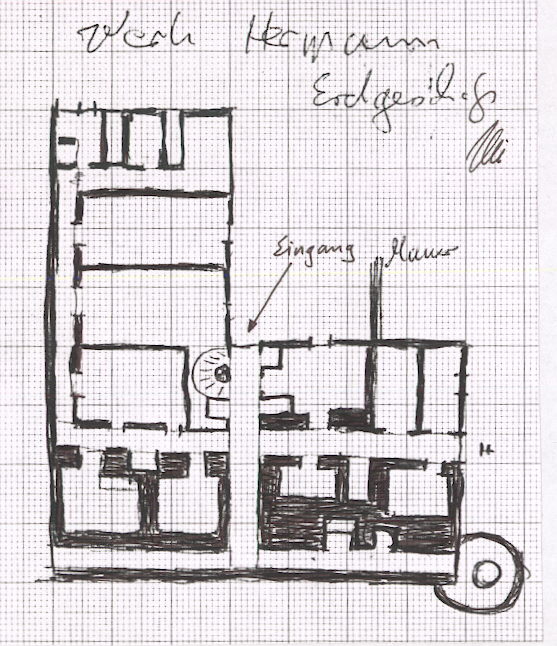 Werk Hermann
Erdgeschoß
Eingang
Mauer